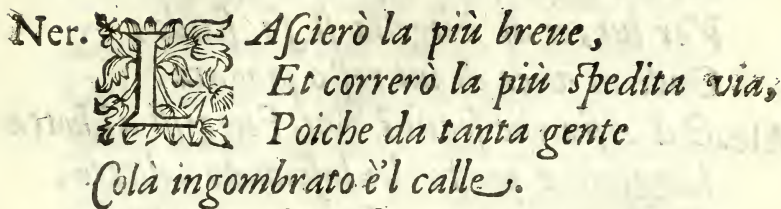 Ner. LAſcierò la più breue,
Et correrò la più ſpedita via,
Poiche da tanta gente
Colà ingombrato è'l calle.